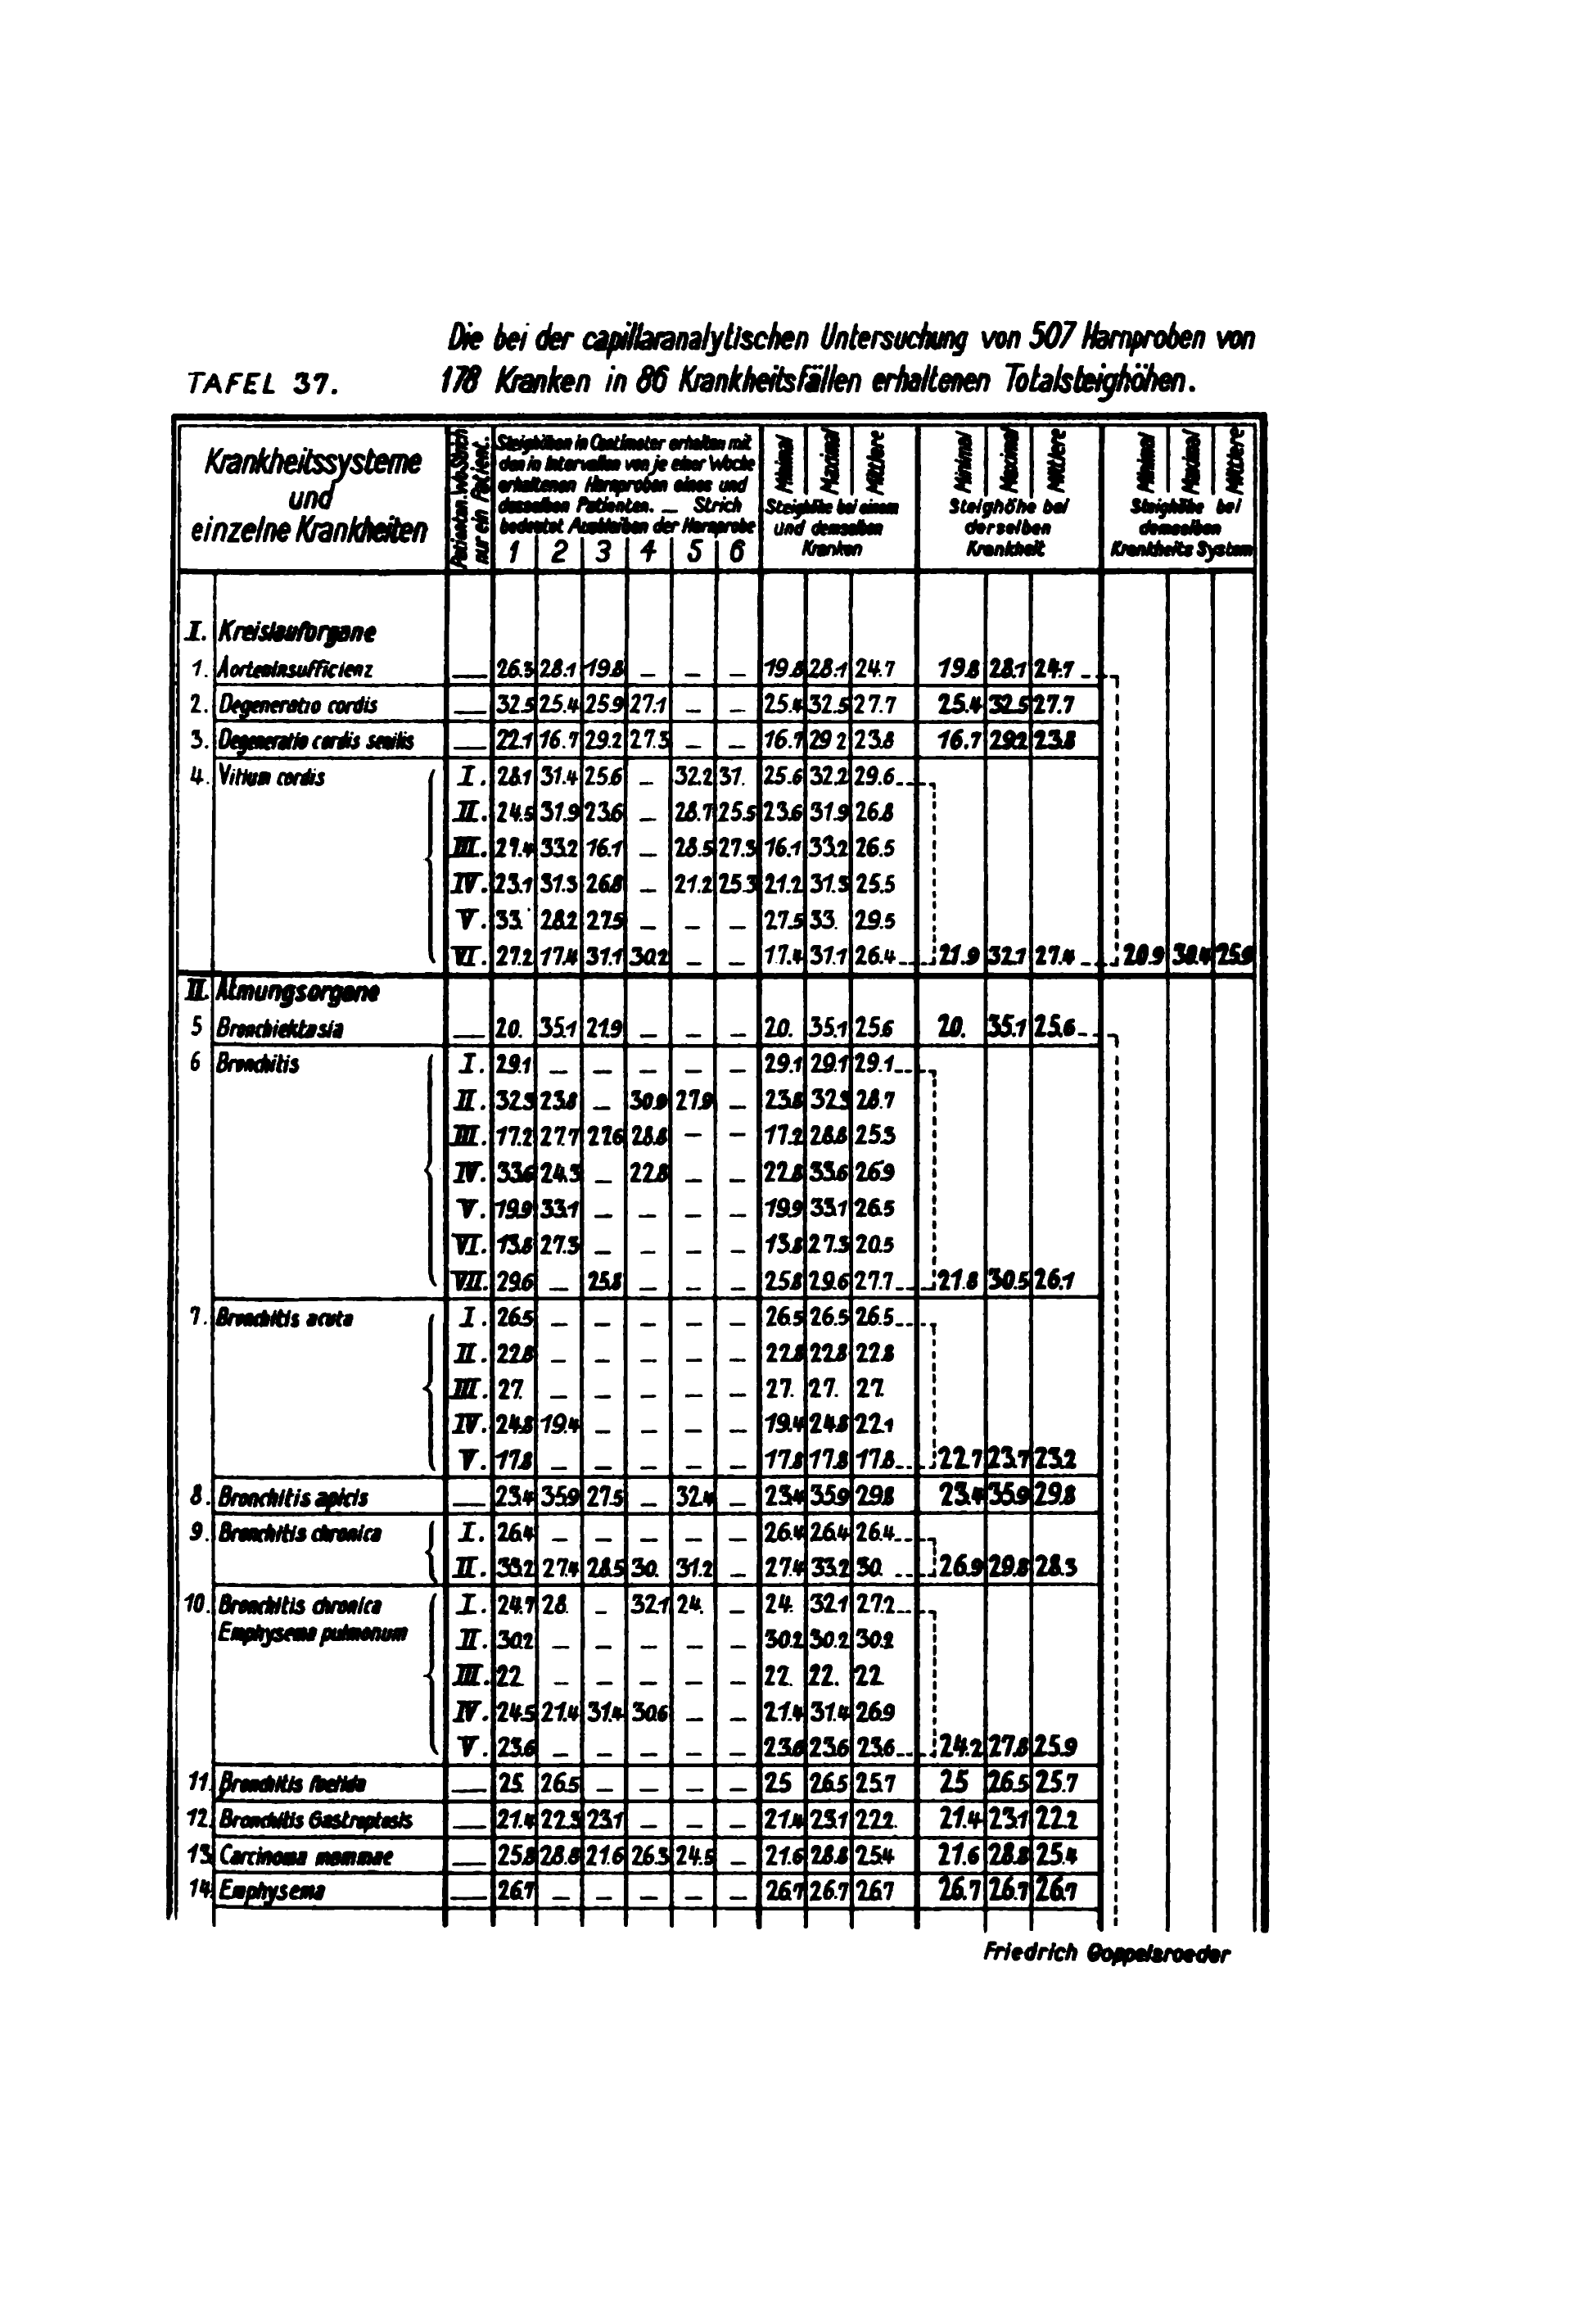 Die bei der capillaranalytischen Untersuchung von 507 Harnproben von
TAFEL 37. 178 Kranken in 86 Krankheitsfällen erhaltenen Totalsteighöhen.
Krankheitssysteme
und
einzelne Krankheiten
Patienten. Wo Strich
nur ein Patient.
Steighöhen in Centimeter erhalten mit
den in Intervallen von je einer Woche
erhaltenen Harnproben eines und
desselben Patienten. _ Strich
bedeutet Ausbleiben der Harnprobe
1 2 3 4 5 6
Minimal Maximal Mittlere
Steighöhe bei einem
und demselben
Kranken
Minimal Maximal Mittlere
Steighöhe bei
derselben
Krankheit
Minimal Maximal Mittlere
Steighöhe bei
demselben
Krankheits System
I. Kreislauforgane
1. Aorteninsufficienz — 26.3 28.1 19.8 _ _ _ 19.8 28.1 24.7 19.8 28.1 24.7
2. Degeneratio cordis — 32.5 25.4 25.9 27.1 _ _ 25.4 32.5 27.7 25.4 32.5 27.7
3. Degeneratio cordis senilis — 22.1 16.7 29.2 27.3 _ _ 16.7 29 2 23.8 16.7 29.2 23.8
4. Vitium cordis I. 28.1 31.4 25.6 _ 32.2 31. 25.6 32.2 29.6
II. 24.5 31.9 23.6 _ 28.7 25.5 23.6 31.9 26.8
III. 27.4 33.2 16.1 _ 28.5 27.3 16.1 33.2 26.5
IV. 23.1 31.3 26.8 _ 21.2 25.3 21.2 31.3 25.5
V. 33. 28.2 27.5 _ _ _ 27.5 33. 29.5
VI. 27.2 17.4 31.1 30.2 _ _ 17.4 31.1 26.4 21.9 32.1 27.4 20.9 30.4 25.9
II. Atmungsorgane
5 Bronchiektasia — 20. 35.1 21.9 _ _ _ 20. 35.1 25.6 20. 35.1 25.6
6 Bronchitis I. 29.1 _ _ _ _ _ 29.1 29.1 29.1
II. 32.3 23.8 _ 30.9 27.9 _ 23.8 32.3 28.7
III. 17.2 27.7 27.6 28.8 _ _ 17.2 28.8 25.3
IV. 33.6 24.3 _ 22.8 _ _ 22.8 33.6 26.9
V. 19.9 33.1 _ _ _ _ 19.9 33.1 26.5
VI. 13.8 27.3 _ _ _ _ 13.8 27.3 20.5
VII. 29.6 _ 25.8 _ _ _ 25.8 29.6 27.7 21.8 30.5 26.1
7. Bronchitis acuta I. 26.5 _ _ _ _ _ 26.5 26.5 26.5
II. 22.8 _ _ _ _ _ 22.8 22.8 22.8
III. 27. _ _ _ _ _ 27. 27. 27.
IV. 24.8 19.4 _ _ _ _ 19.4 24.8 22.1
V. 17.8 _ _ _ _ _ 17.8 17.8 17.8 22.7 23.7 23.2
8. Bronchitis apicis — 23.4 35.9 27.5 _ 32.4 _ 23.4 35.9 29.8 23.4 35.9 29.8
9. Bronchitis chronica I. 26.4 _ _ _ _ _ 26.4 26.4 26.4
II. 33.2 27.4 28.5 30. 31.2 _ 27.4 33.2 30. 26.9 29.8 28.3
10. Bronchitis chronica I. 24.7 28. _ 32.1 24. _ 24. 32.1 27.2
Emphysema pulmonum II. 30.2 _ _ _ _ _ 30.2 30.2 30.2
III. 22. _ _ _ _ _ 22. 22. 22.
IV. 24.5 21.4 31.4 30.6 _ _ 21.4 31.4 26.9
V. 23.6 _ _ _ _ _ 23.6 23.6 23.6 24.2 27.8 25.9
11. Bronchitis foetida — 25. 26.5 _ _ _ _ 25 26.5 25.7 25 26.5 25.7
12. Bronchitis Gastroptosis — 21.4 22.3 23.1 _ _ _ 21.4 23.1 22.2. 21.4 23.1 22.2
13. Carcinoma mammae — 25.8 28.8 21.6 26.3 24.5 _ 21.6 28.8 25.4 21.6 28.8 25.4
14. Emphysema — 26.7 _ _ _ _ _ 26.7 26.7 26.7 26.7 26.7 26.7
Friedrich Goppelsroeder